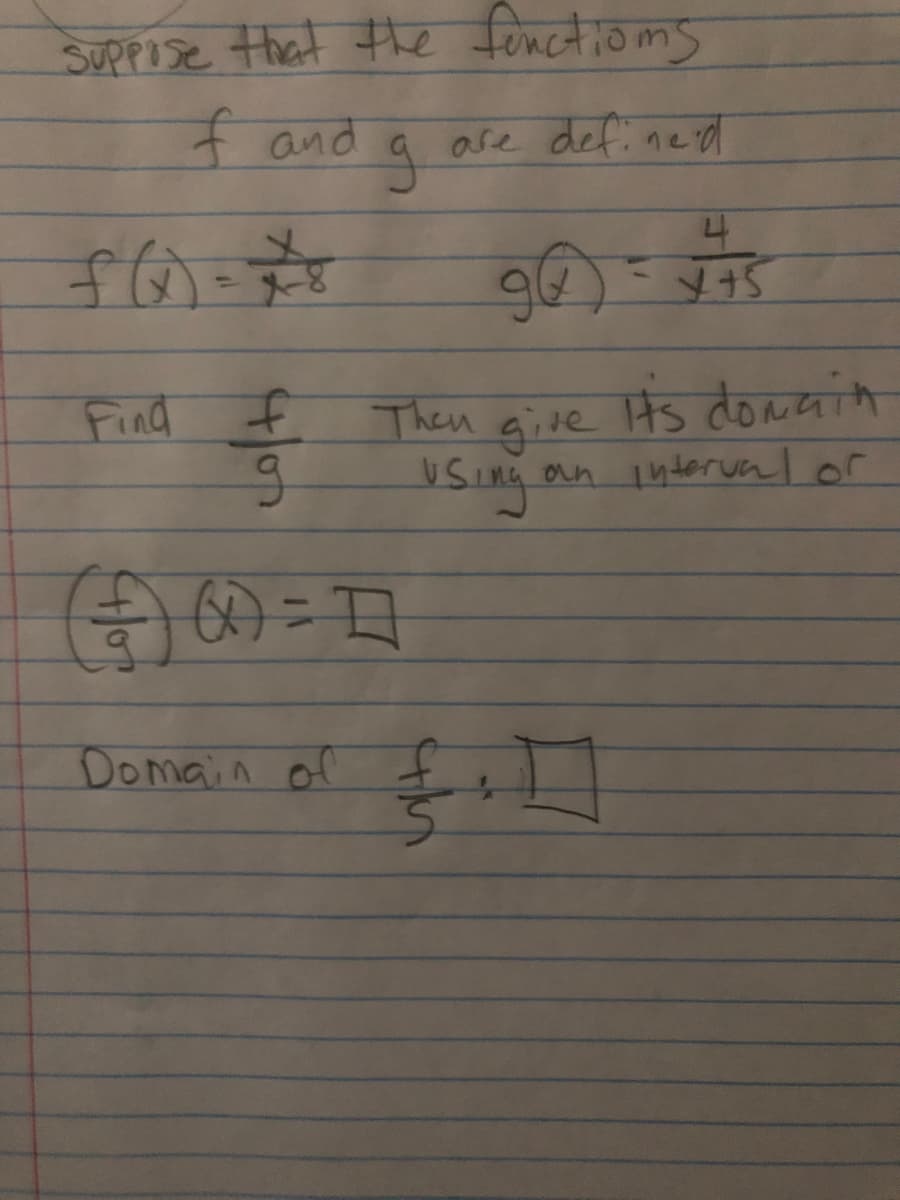 suppose that the functioms
f and g are defined
f(x) = x/x-8 g(x) = 4/x+5
Find f/g Then give its domain
using an interval or
(f/g)(x) = □
Domain of f/5 : □